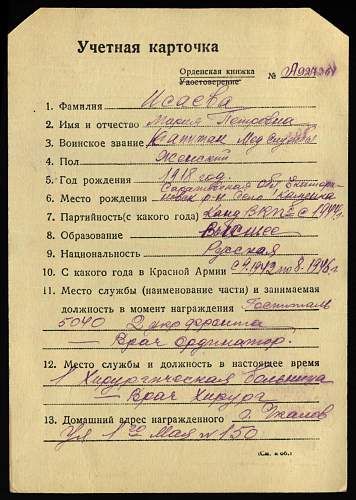 Учетная карточка
Орденская книжка
Удостоверение № А927364
1. Фамилия Исаева
2. Имя и отчество Мария Петровна
3. Воинское звание Капитан Мед Службы
4. Пол Женский
5. Год рождения 1918 год.
Саратовская обл. Екатери-
6. Место рождения р-н Село
7. Партийность (с какого года) Канд ВКПб с 1944г
8. Образование Высшее
9. Национальность Русская
10. С какого года в Красной Армии с 9.1942 по 8.1946г
11. Место службы (наименование части) и занимаемая
должность в момент награждения Госпиталь
5040 2 укр фронта
— Врач ординатор.
12. Место службы и должность в настоящее время
1 Хирургическая больница
— Врач Хирург
13. Домашний адрес награжденного
Ул 1го Мая № 150
(См. н об.)